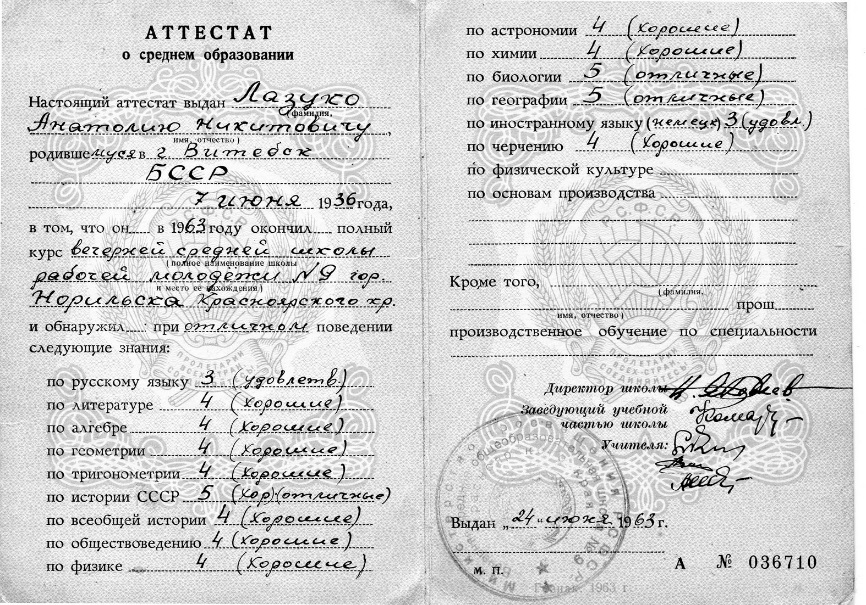 АТТЕСТАТ
о среднем образовании
Настоящий аттестат выдан Лазуко
(фамилия,
Анатолию Никитовичу,
имя, отчество)
родившемуся в г Витебск
БССР
7 июня 1936 года,
в том, что он в 1963 году окончил полный
курс вечерней средней школы
(полное наименование школы
рабочей молодежи №9 гор.
и место ее нахождения)
Норильска Красноярского кр.
и обнаружил при отличном поведении
следующие знания:
по русскому языку 3 (удовлетв.)
по литературе 4 (хорошие)
по алгебре 4 (хорошие)
по геометрии 4 (хорошие)
по тригонометрии 4 (хорошие)
по истории СССР 5 (хор) (отличные)
по всеобщей истории 4 (хорошие)
по обществоведению 4 (хорошие)
по физике 4 (хорошие)
по астрономии 4 (хорошие)
по химии 4 (хорошие)
по биологии 5 (отличные)
по географии 5 (отличные)
по иностранному языку (немецк) 3 (удовл.)
по черчению 4 (хорошие)
по физической культуре
по основам производства
РСФСР
Кроме того,
(фамилия,
прош
имя, отчество)
производственное обучение по специальности
ПРОЛЕТАРИИ
ВСЕХ СТРАН
СОЕДИНЯЙТЕСЬ
Директор школы
Заведующий учебной
частью школы
Учителя:
Выдан "24" июня 1963 г.
М. П.
А № 036710
Гознак. 1963 г.